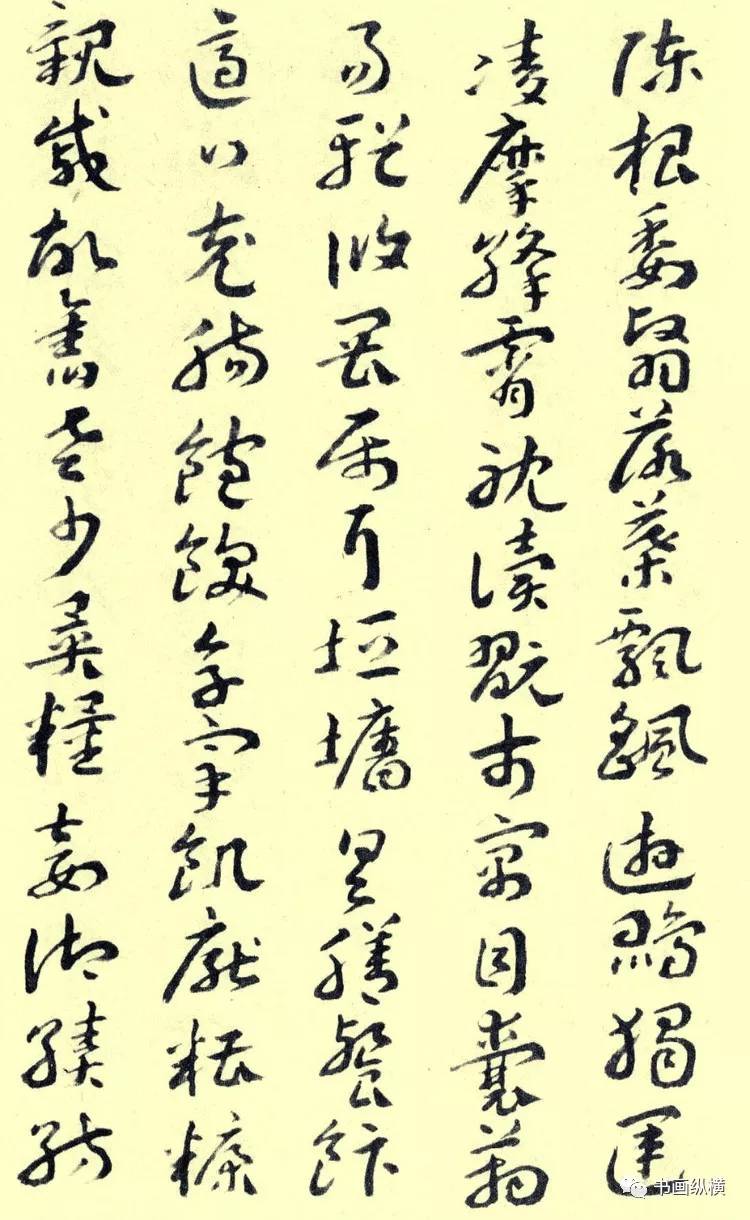 陳根委翳落葉飄颻遊鵾獨運
凌摩絳霄耽讀翫市寓目囊箱
易輶攸畏屬耳垣墻具膳餐飰
適口充腸飽飫烹宰飢厭糟糠
親戚故舊老少異糧妾御績紡
书画纵横